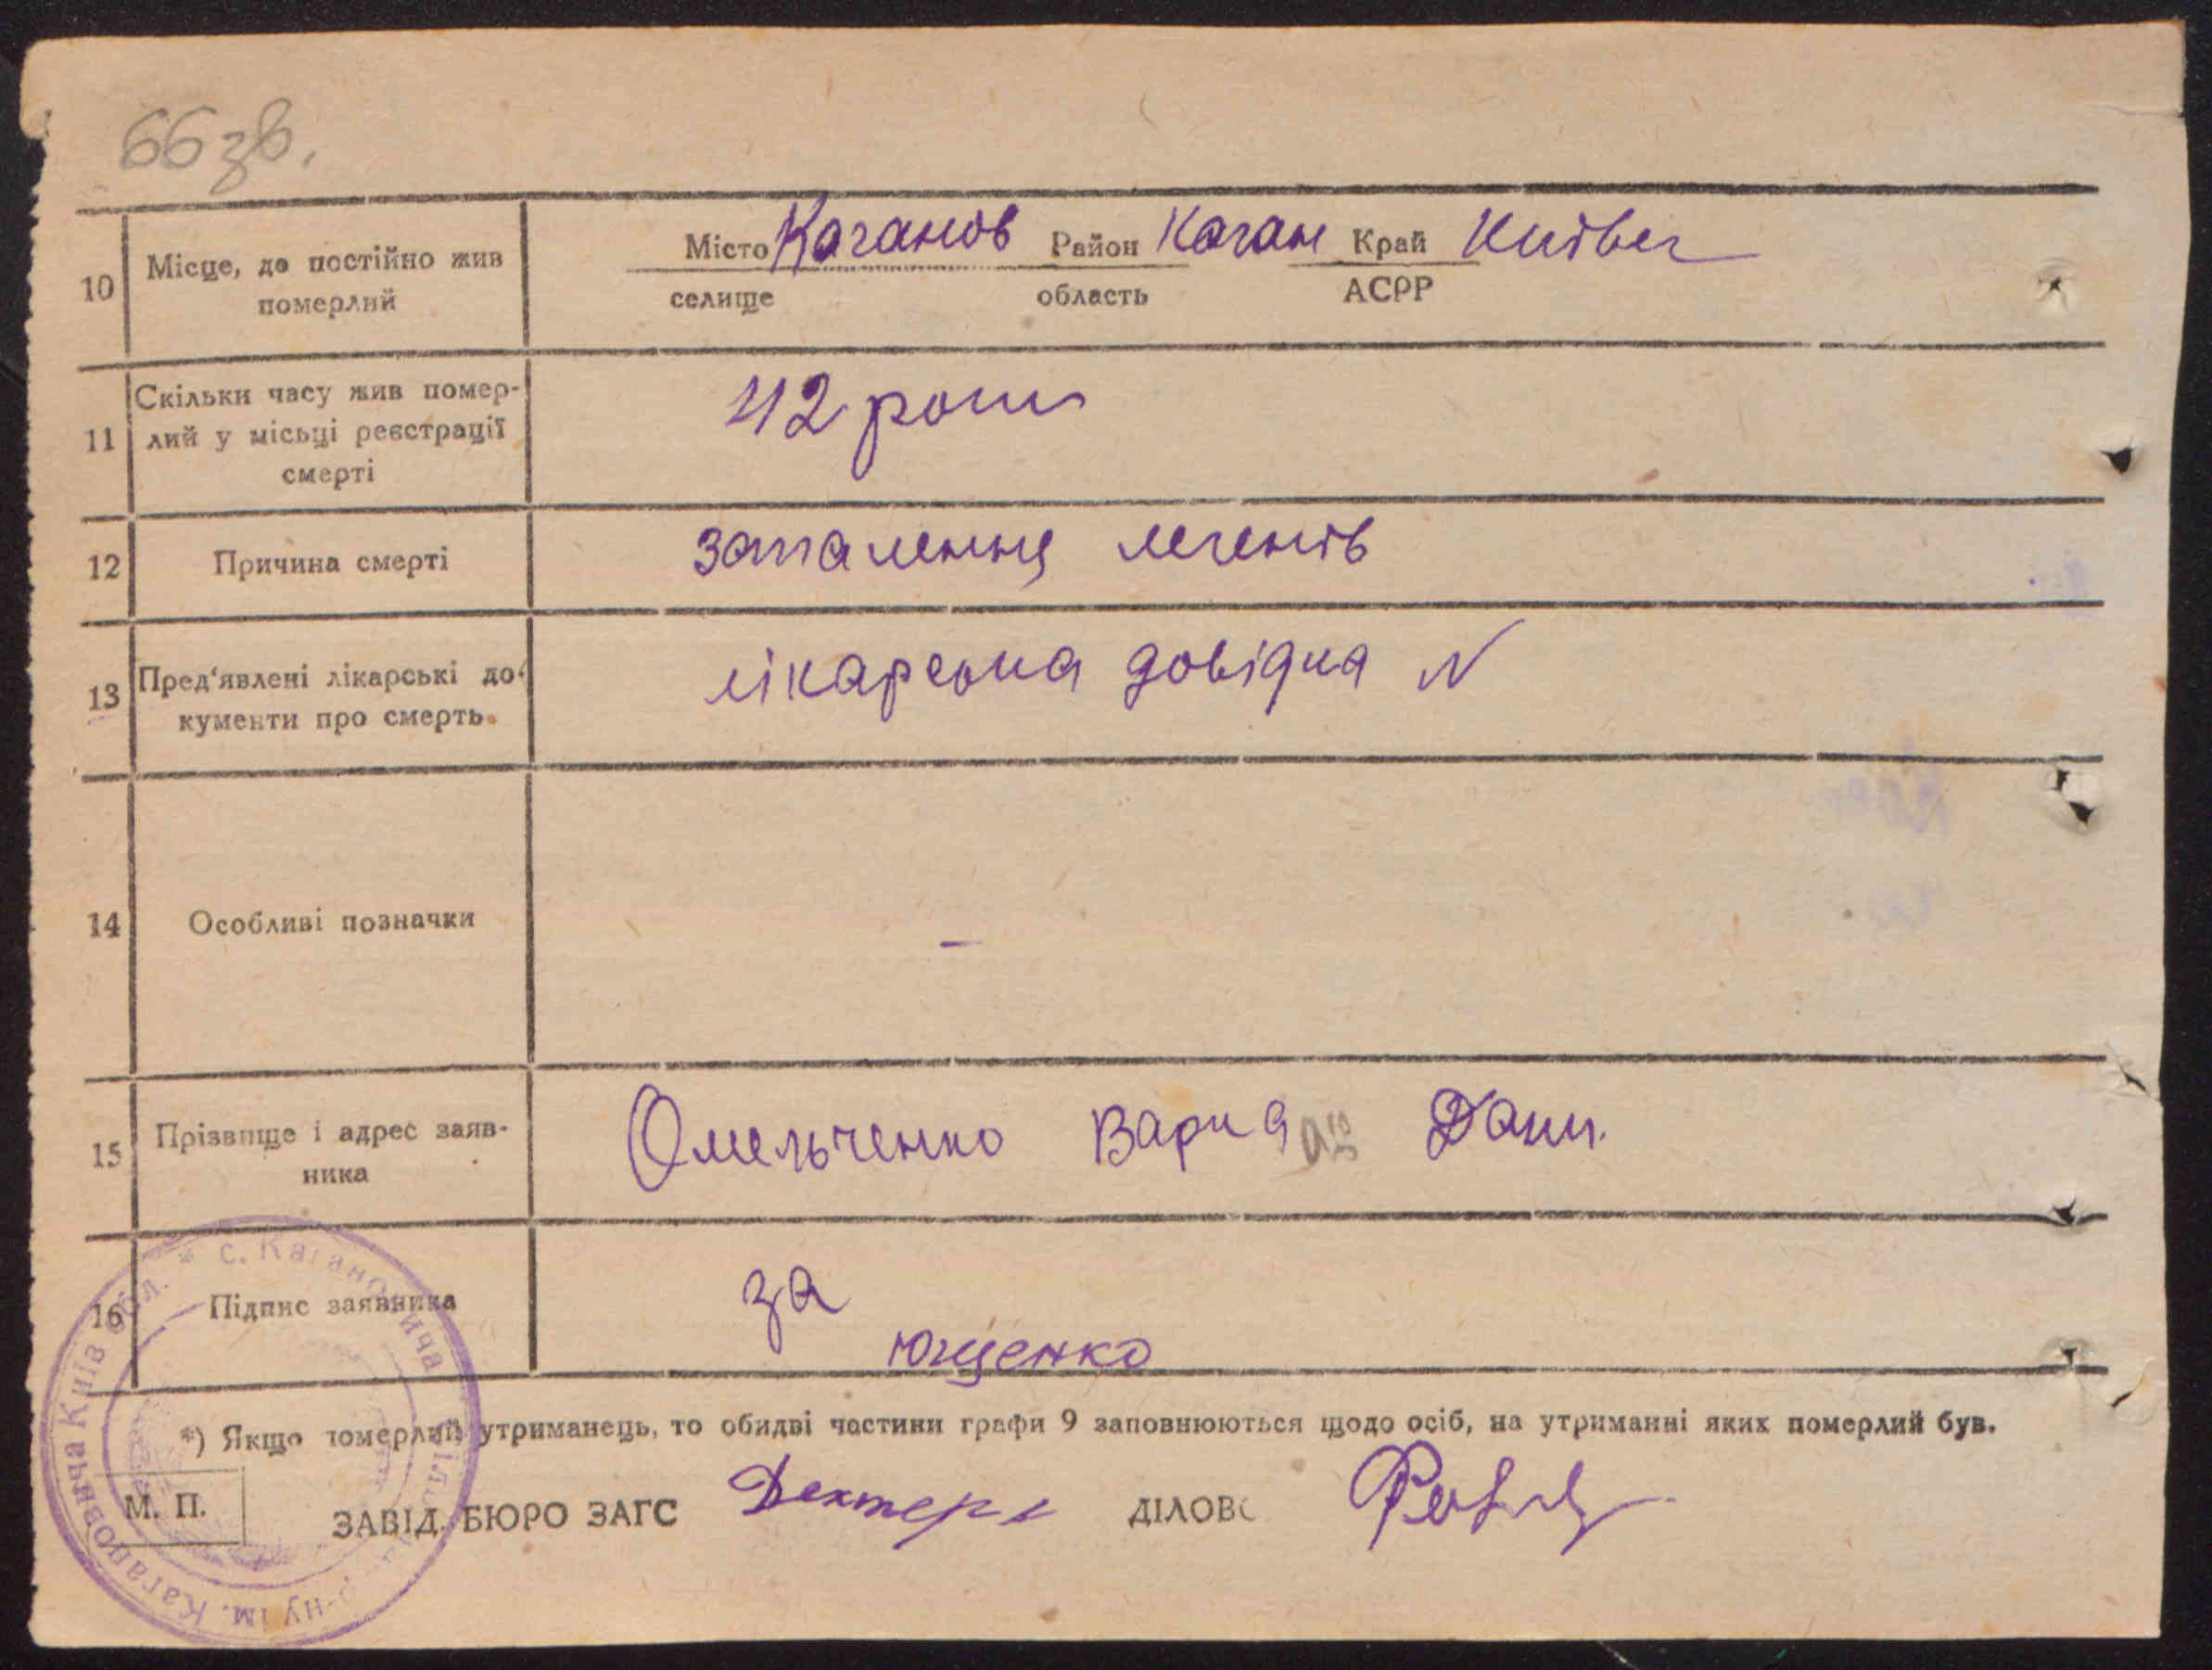 66 зв.
Місто Каганов Район Каган Край Київ
10 Місце, де постійно жив
селище область АСРР
померлий
Скільки часу жив помер-
42 роки
11 лий у місьці реєстрації
смерті
12 Причина смерті запалення легенів
13 Пред‘явлені лікарські до-
лікарська довідка N
кументи про смерть.
14 Особливі позначки –
15 Прізвище і адрес заяв-
Омельченко Дани.
ника
16 Підпис заявника за
Ющенко
*) Якщо померлий утриманець, то обидві частини графи 9 заповнюються щодо осіб, на утриманні яких померлий був.
М. П. ЗАВІД. БЮРО ЗАГС Дехтерь ДІЛОВ
* с. Кагановича
р-ну ім. Кагановича Київ обл.